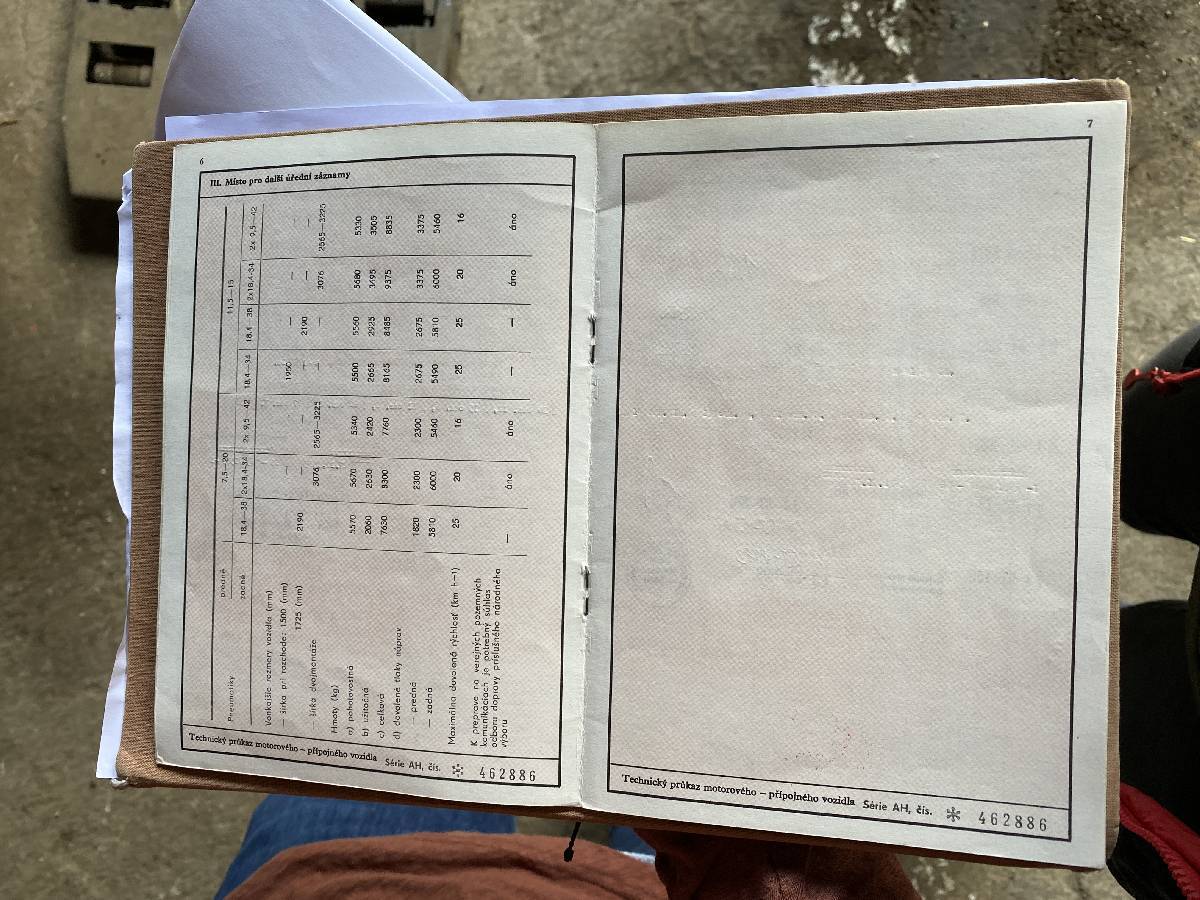 6
III. Místo pro další úřední záznamy
Pneumatiky predné 7,5—20 11,5—15
zadné 18,4—38 2x18,4-34 2x 9,5 42 18,4—34 18,4 38 2x18,4-34 2x 9,5—42
Vonkajšie rozmery vozidla (mm)
— šírka pri rozchode: 1500 (mm) — — 1950 — — —
1725 (mm) 2190 — — — 2190 — —
— šírka dvojmontáže 3076 2565—3225 — — 3076 2565—3225
Hmoty (kg)
a) pohotovostná 5570 5670 5340 5500 5560 5680 5330
b) užitočná 2060 2630 2420 2665 2925 3495 3505
c) celková 7630 8300 7760 8165 8485 9375 8835
d) dovolené tlaky náprav
— predná 1820 2300 2300 2675 2675 3375 3375
— zadná 5810 6000 5460 5490 5810 6000 5460
Maximálna dovolená rýchlosť (km h—1) 25 20 16 25 25 20 16
K preprave na verejných pozemných
komunikáciach je potrebný súhlas
odboru dopravy príslušného národného
výboru — áno áno — — áno áno
Technický průkaz motorového – přípojného vozidla Série AH, čís. * 462886
7
Technický průkaz motorového – přípojného vozidla Série AH, čís. * 462886